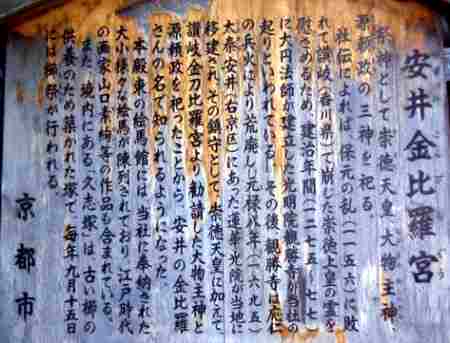 安井金比羅宮
祭神として崇徳天皇、大物主神、
源頼政の三神を祀る。
社伝によれば、保元の乱(一一五六)に敗
れて讃岐(香川県)で崩じた崇徳上皇の霊を
慰さめるため、建治年間(一二七五〜七七)
に大円法師が建立した光明院観勝寺が当社の
起りといわれている。その後、観勝寺は応仁
の兵火により荒廃し、元禄八年(一六九五)
太秦安井(右京区)にあった蓮華光院が当地に
移建され、その鎮守として、崇徳天皇に加えて、
讃岐金刀比羅宮より勧請した大物主神と
源頼政を祀ったことから、安井の金比羅
さんの名で知られるようになった。
本殿東の絵馬館には、当社に奉納された
大小様々な絵馬が陳列されており、江戸時代
の画家山口素絢等の作品も含まれている。
また、境内にある「久志塚」は、古い櫛の
供養のため築かれた塚で、毎年九月十五日
には櫛祭が行われる。
京都市